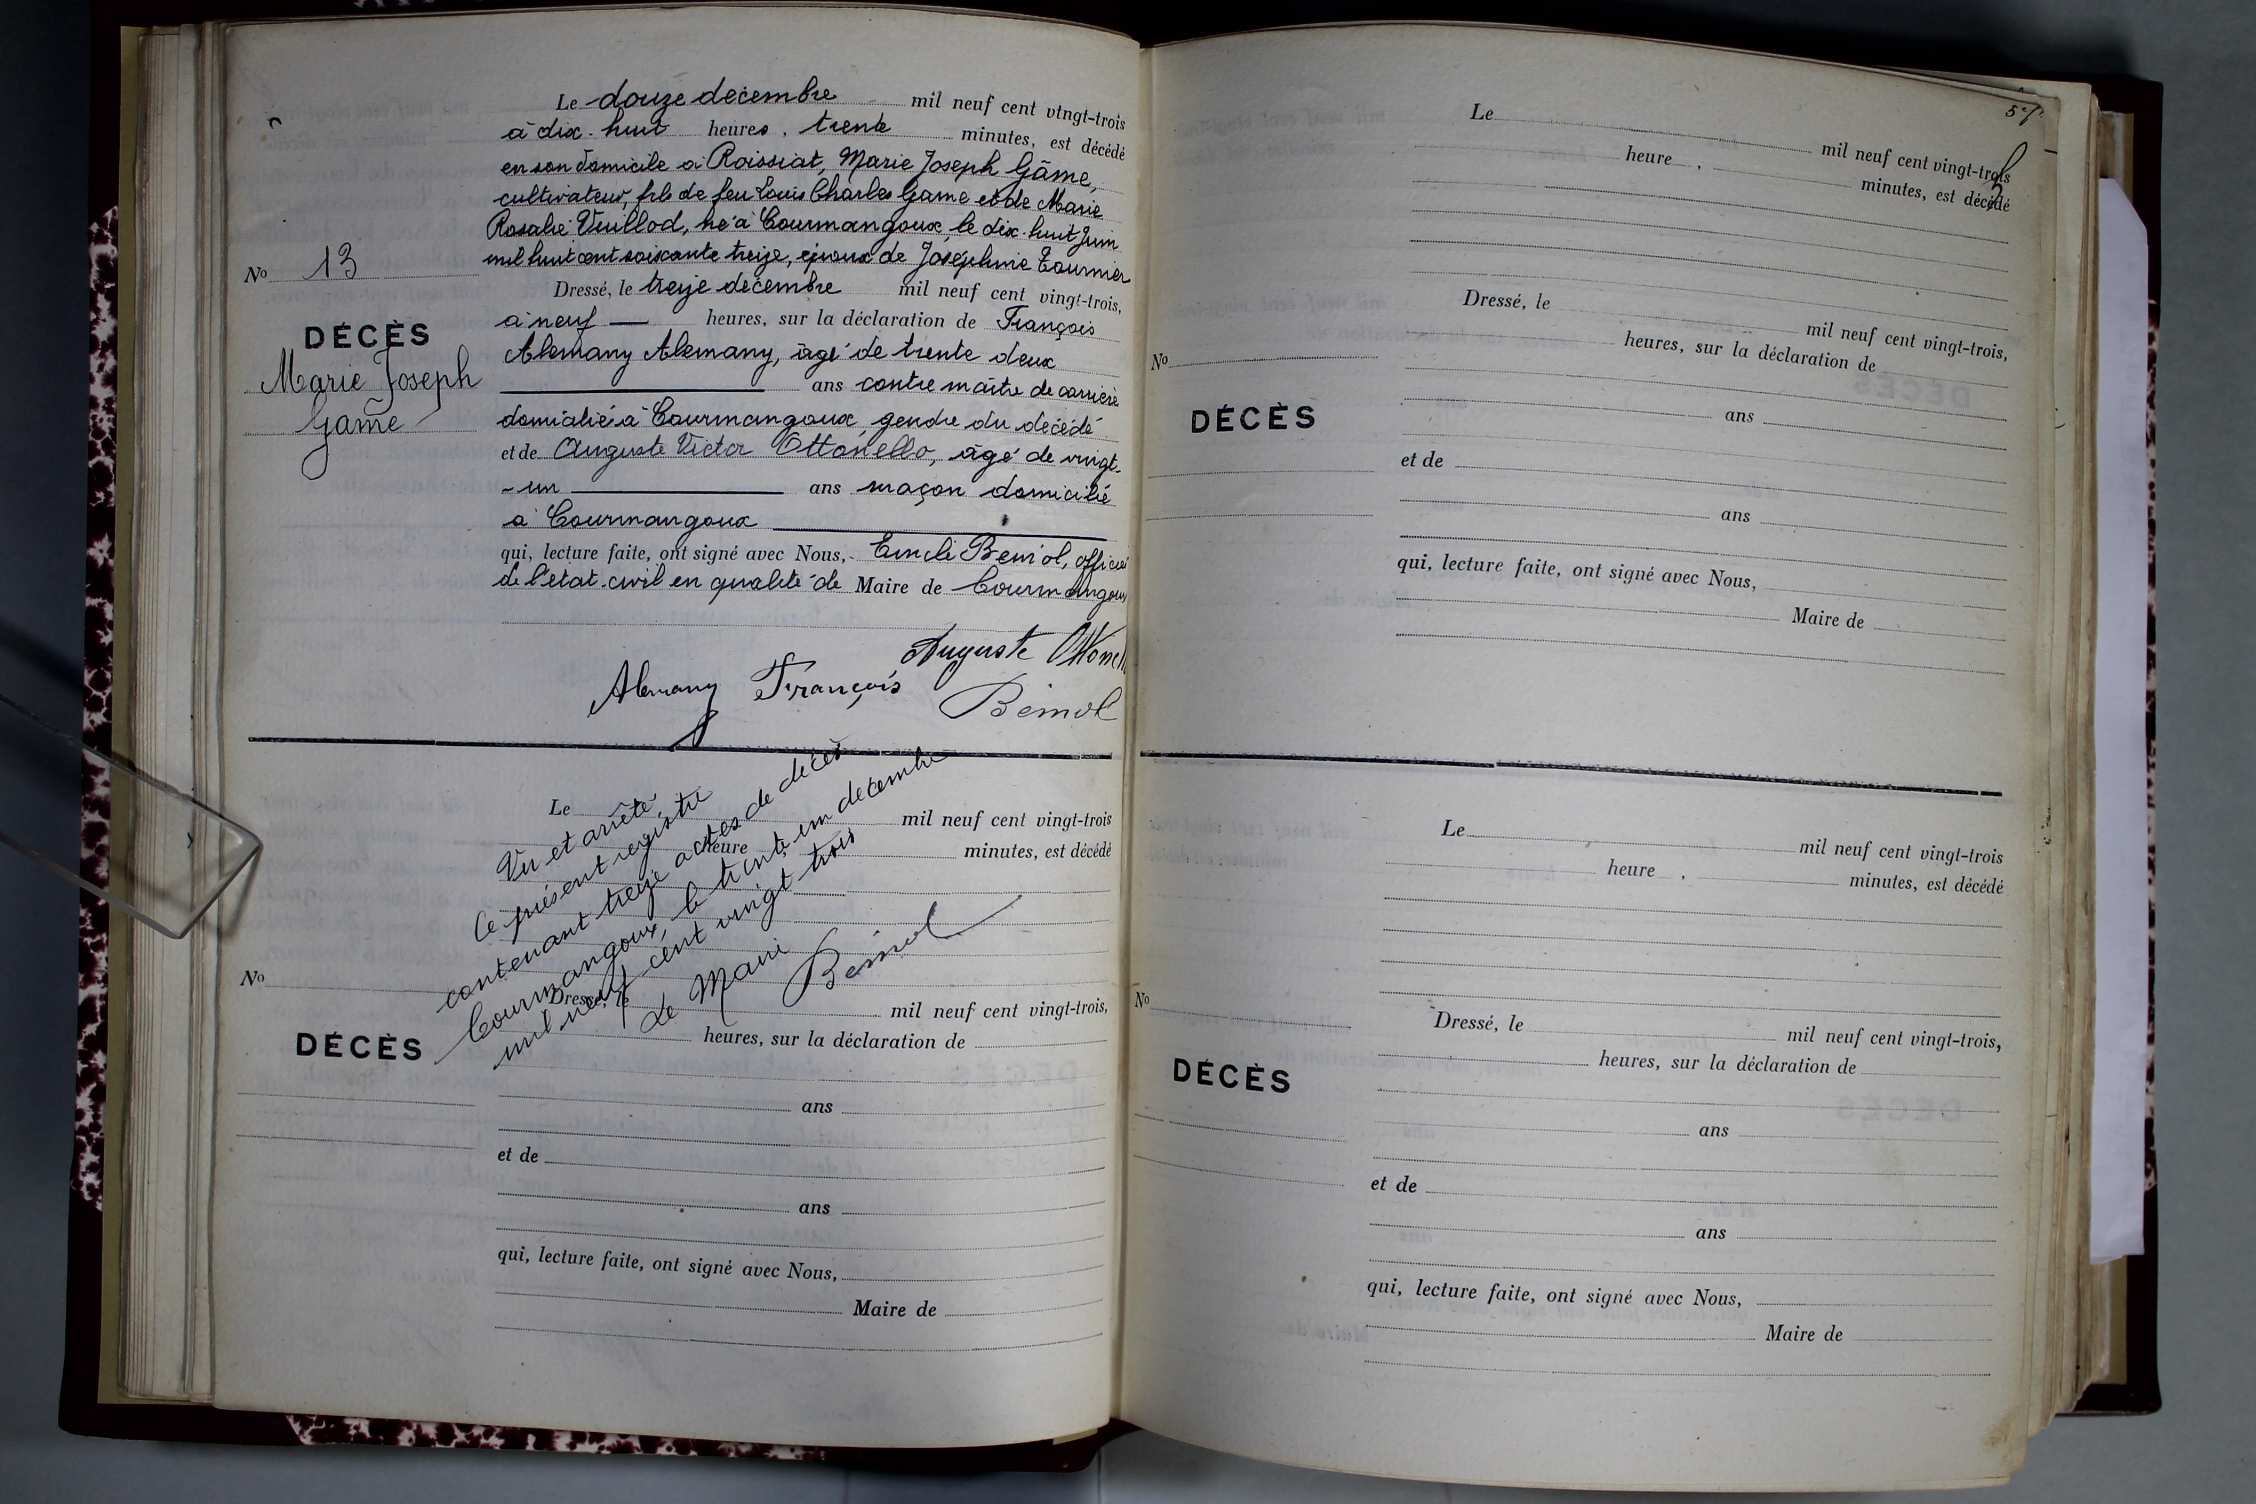 Le douze décembre mil neuf cent vingt-trois
à dix-huit heures, trente minutes, est décédé
en son domicile à Roissiat, Marie Joseph Gâme,
cultivateur, fils de feu Louis Charles Game et de Marie
Rosalie Vuillod, né à Courmangoux, le dix-huit Juin
mil huit cent soixante treize, époux de Joséphine Tournier
No 13
Dressé, le treize décembre mil neuf cent vingt-trois,
à neuf — heures, sur la déclaration de François
DÉCÈS
Marie Joseph
Game
Alemany Alemany, âgé de trente deux
ans contre maître de carrière
domicilié à Courmangoux, gendre du décédé
et de Auguste Victor Ottonello, âgé de vingt-
-un ans maçon domicilié
à Courmangoux
qui, lecture faite, ont signé avec Nous, Emile Beniol, officier
de l'état-civil en qualité de Maire de Courmangoux
Auguste
Alemany François
Le mil neuf cent vingt-trois
heure , minutes, est décédé
Vu et arrêté
Ce présent registre
contenant treize actes de décès
Courmangoux, le trente un décembre
mil neuf cent vingt trois
Le Maire
No
Dressé, le mil neuf cent vingt-trois,
DÉCÈS
heures, sur la déclaration de
ans
et de
ans
qui, lecture faite, ont signé avec Nous,
Maire de
57
Le mil neuf cent vingt-trois
heure , minutes, est décédé
Dressé, le mil neuf cent vingt-trois,
heures, sur la déclaration de
No
DÉCÈS
ans
et de
ans
qui, lecture faite, ont signé avec Nous,
Maire de
Le mil neuf cent vingt-trois
heure , minutes, est décédé
No
Dressé, le mil neuf cent vingt-trois,
heures, sur la déclaration de
DÉCÈS
ans
et de
ans
qui, lecture faite, ont signé avec Nous,
Maire de